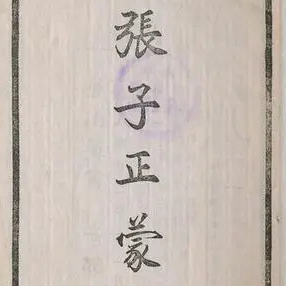 張子正蒙